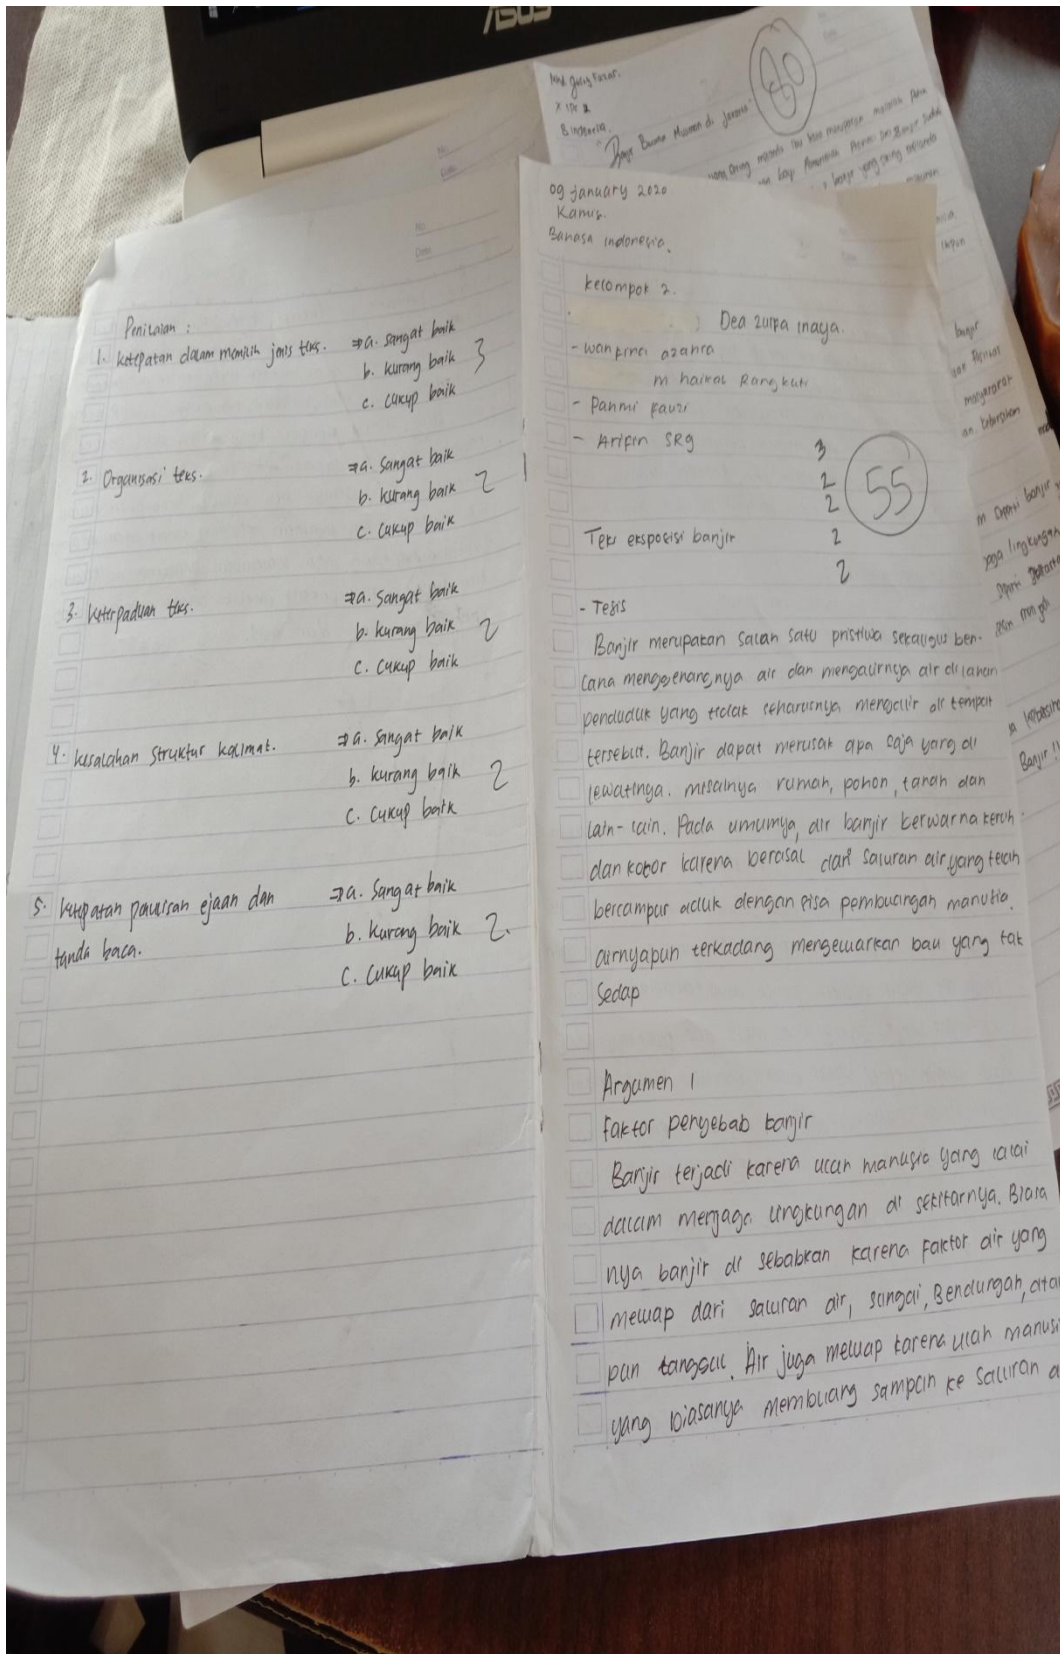 ASUS
80
X IPA 2
B. indonesia.
No.
Date
No.
Date
Penilaian :
1. ketepatan dalam memilih jenis teks. ⇒ a. sangat baik
b. kurang baik 3
c. cukup baik
2. Organisasi teks. ⇒ a. sangat baik
b. kurang baik 2
c. cukup baik
3. keterpaduan teks. ⇒ a. sangat baik
b. kurang baik 2
c. cukup baik
4. kesalahan struktur kalimat. ⇒ a. sangat baik
b. kurang baik 2
c. cukup baik
5. ketepatan penulisan ejaan dan ⇒ a. sangat baik
tanda baca. b. kurang baik 2.
c. cukup baik
09 january 2020
Kamis.
Bahasa indonesia.
kelompok 2.
Dea zulfa inaya.
- wan azahra
m haikal Rangkuti
- Panmi fauzi
- Arifin SRg
3
2
2
2
2
55
Teks eksposisi banjir
- Tesis
Banjir merupakan salah satu pristiwa sekaligus ben-
cana menggenangnya air dan mengalirnya air di lahan
penduduk yang tidak seharusnya mengalir di tempat
tersebut. Banjir dapat merusak apa saja yang di
lewatinya. misalnya rumah, pohon, tanah dan
lain-lain. Pada umumya, air banjir berwarna keruh
dan kotor karena berasal dari saluran air, yang telah
bercampur aduk dengan sisa pembuangan manusia.
airnyapun terkadang mengeluarkan bau yang tak
sedap
Argumen 1
faktor penyebab banjir
Banjir terjadi karena ulah manusia yang lalai
dalam menjaga lingkungan di sekitarnya. Biasa
nya banjir di sebabkan karena faktor air yang
meluap dari saluran air, sungai, Bendungan, ata
pun tanggul. Air juga meluap karena ulah manusi
yang biasanya membuang sampah ke saluran a